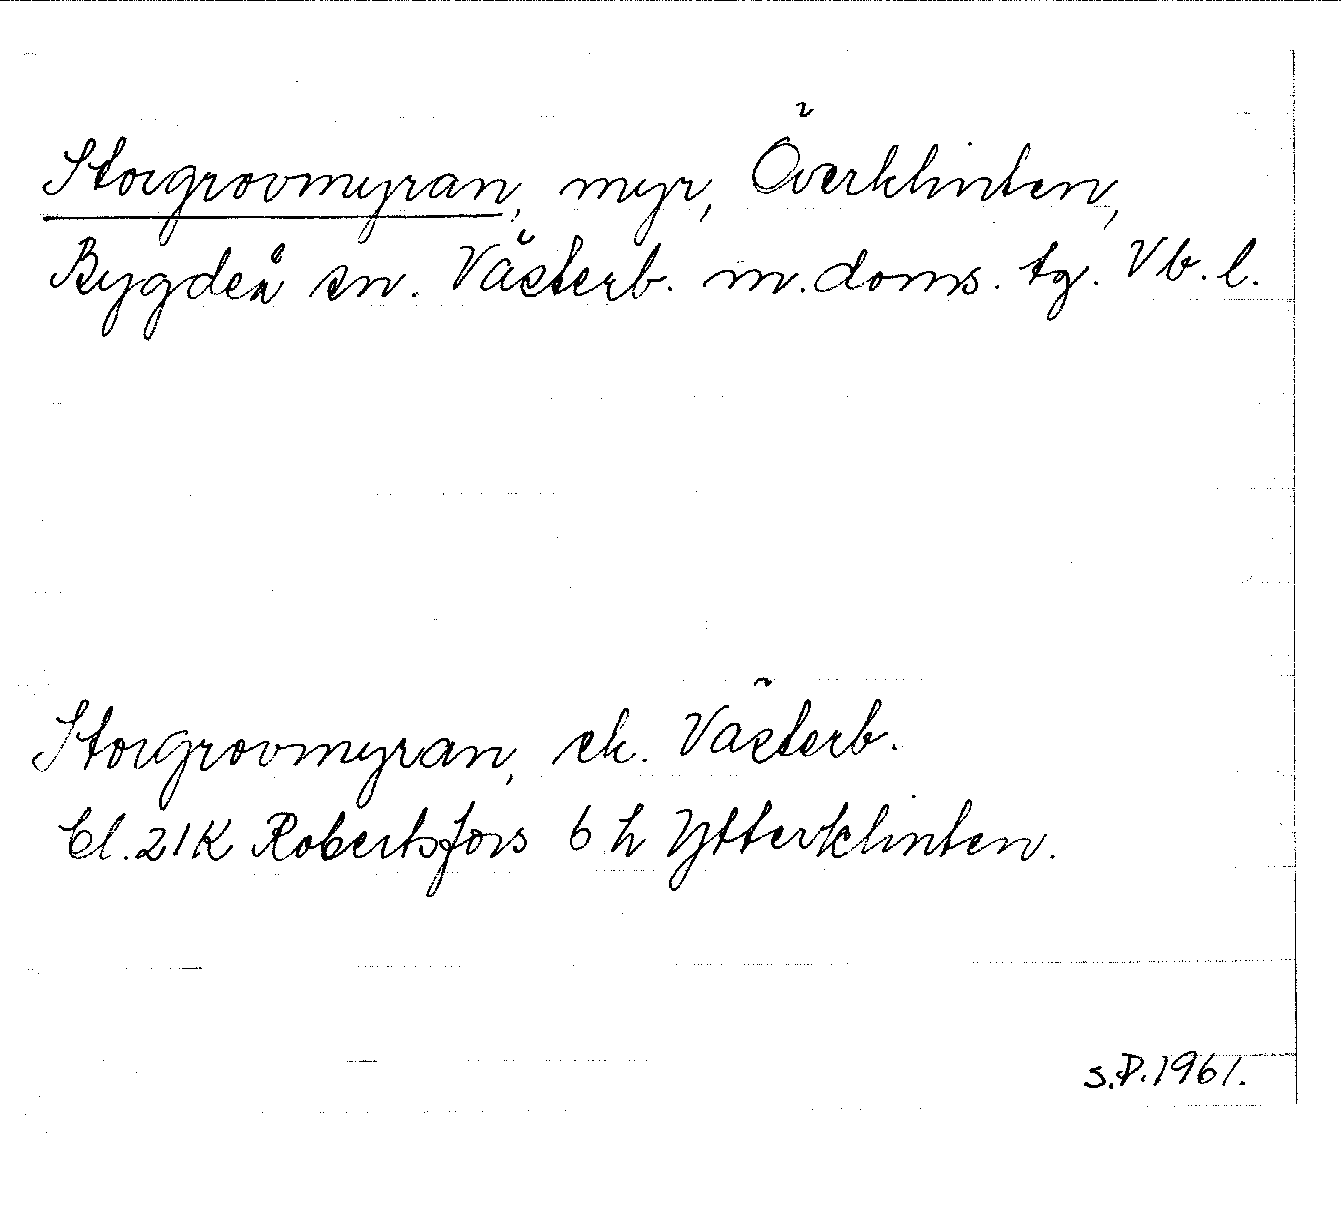 Storgrovmyran, myr, Överklinten,
Bygdeå sn. Västerb. m. doms. tg. Vb. l.
Storgrovmyran, ek. Västerb.
Bl. 21K Robertsfors 6 h Ytterklinten.
S.P. 1961.